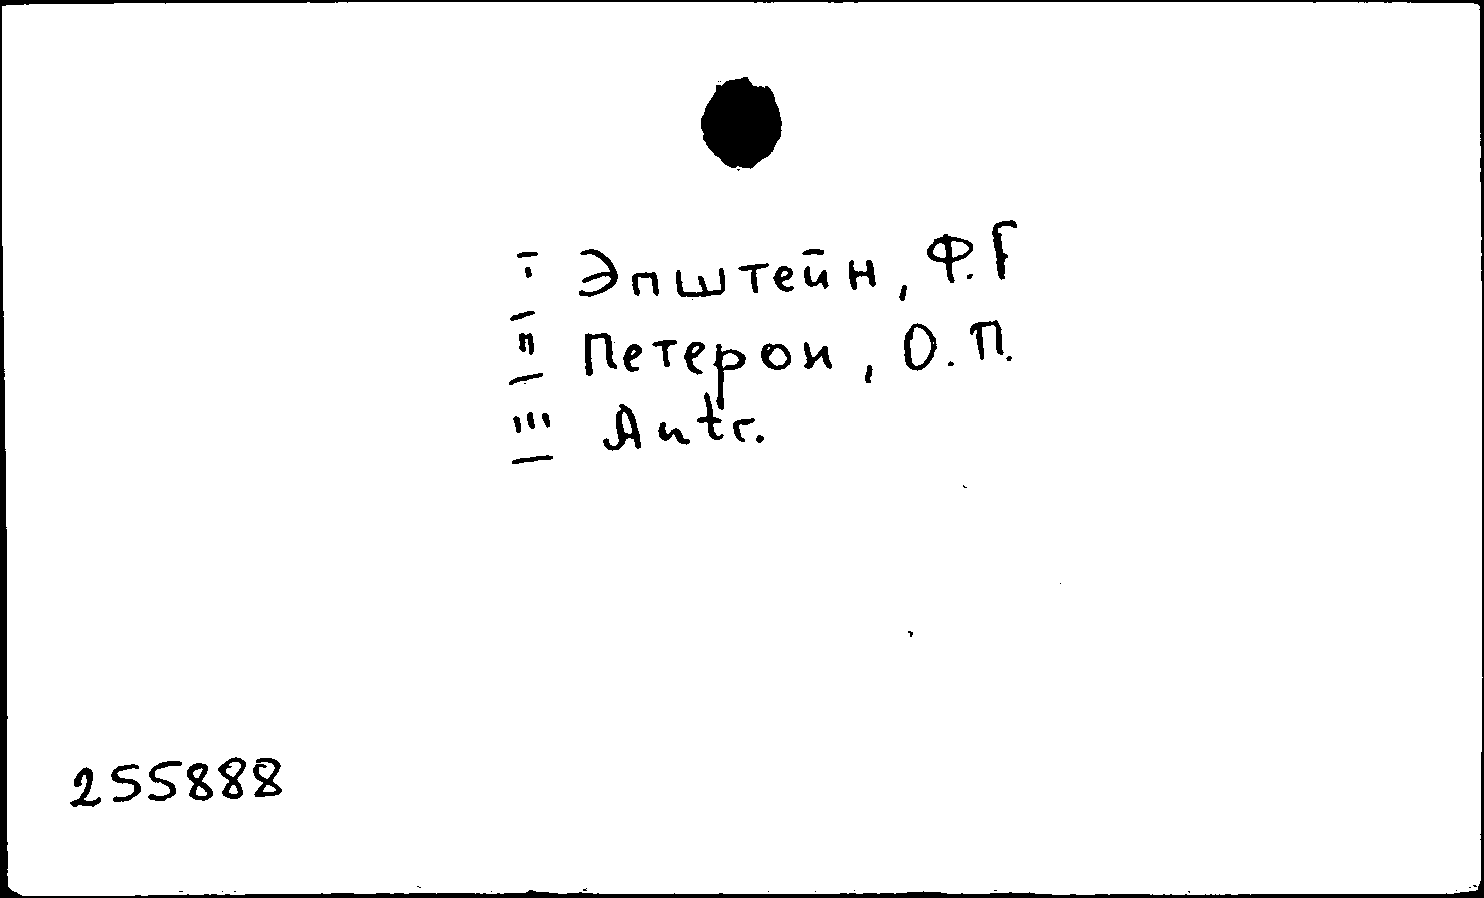 I Эпштейн, Ф. Г
II Петерон, О. П.
III Antr.
255888